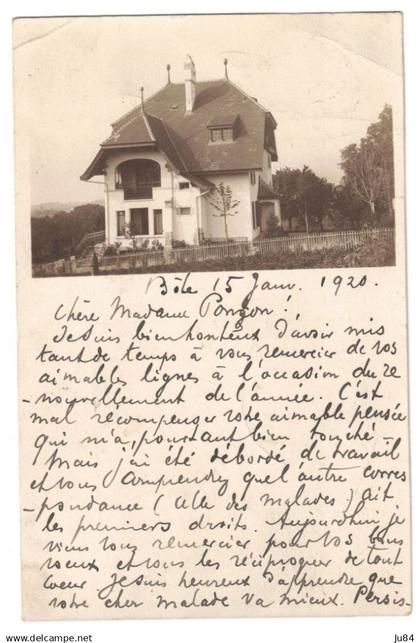 Bôle 15 Janv. 1920.
Chère Madame !
Je suis bien honteux d'avoir mis
tant de temps à vous remercier de vos
aimables lignes à l'occasion du re
-nouvellement de l'année. C'est
mal récompenser votre aimable pensée
qui m'a, pourtant bien touché -
Mais j'ai été débordé de travail
et vous comprendrez que l'autre corres
-pondance (celle des malades) ait
les premiers droits. Aujourd'hui je
viens vous remercier pour vos bons
voeux et vous les réciproquer de tout
coeur. Je suis heureux d'apprendre que
votre cher malade va mieux. Persis-
Ju84